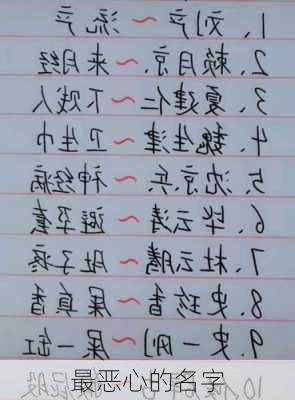 1、刘产～流产
2、赖月京～来月经
3、夏建仁～下贱人
4、魏生津～卫生巾
5、沈京兵～神经病
6、毕云涛～避孕套
7、杜云腾～肚子疼
8、史珍香～屎真香
9、史一刚～屎一缸
最恶心的名字